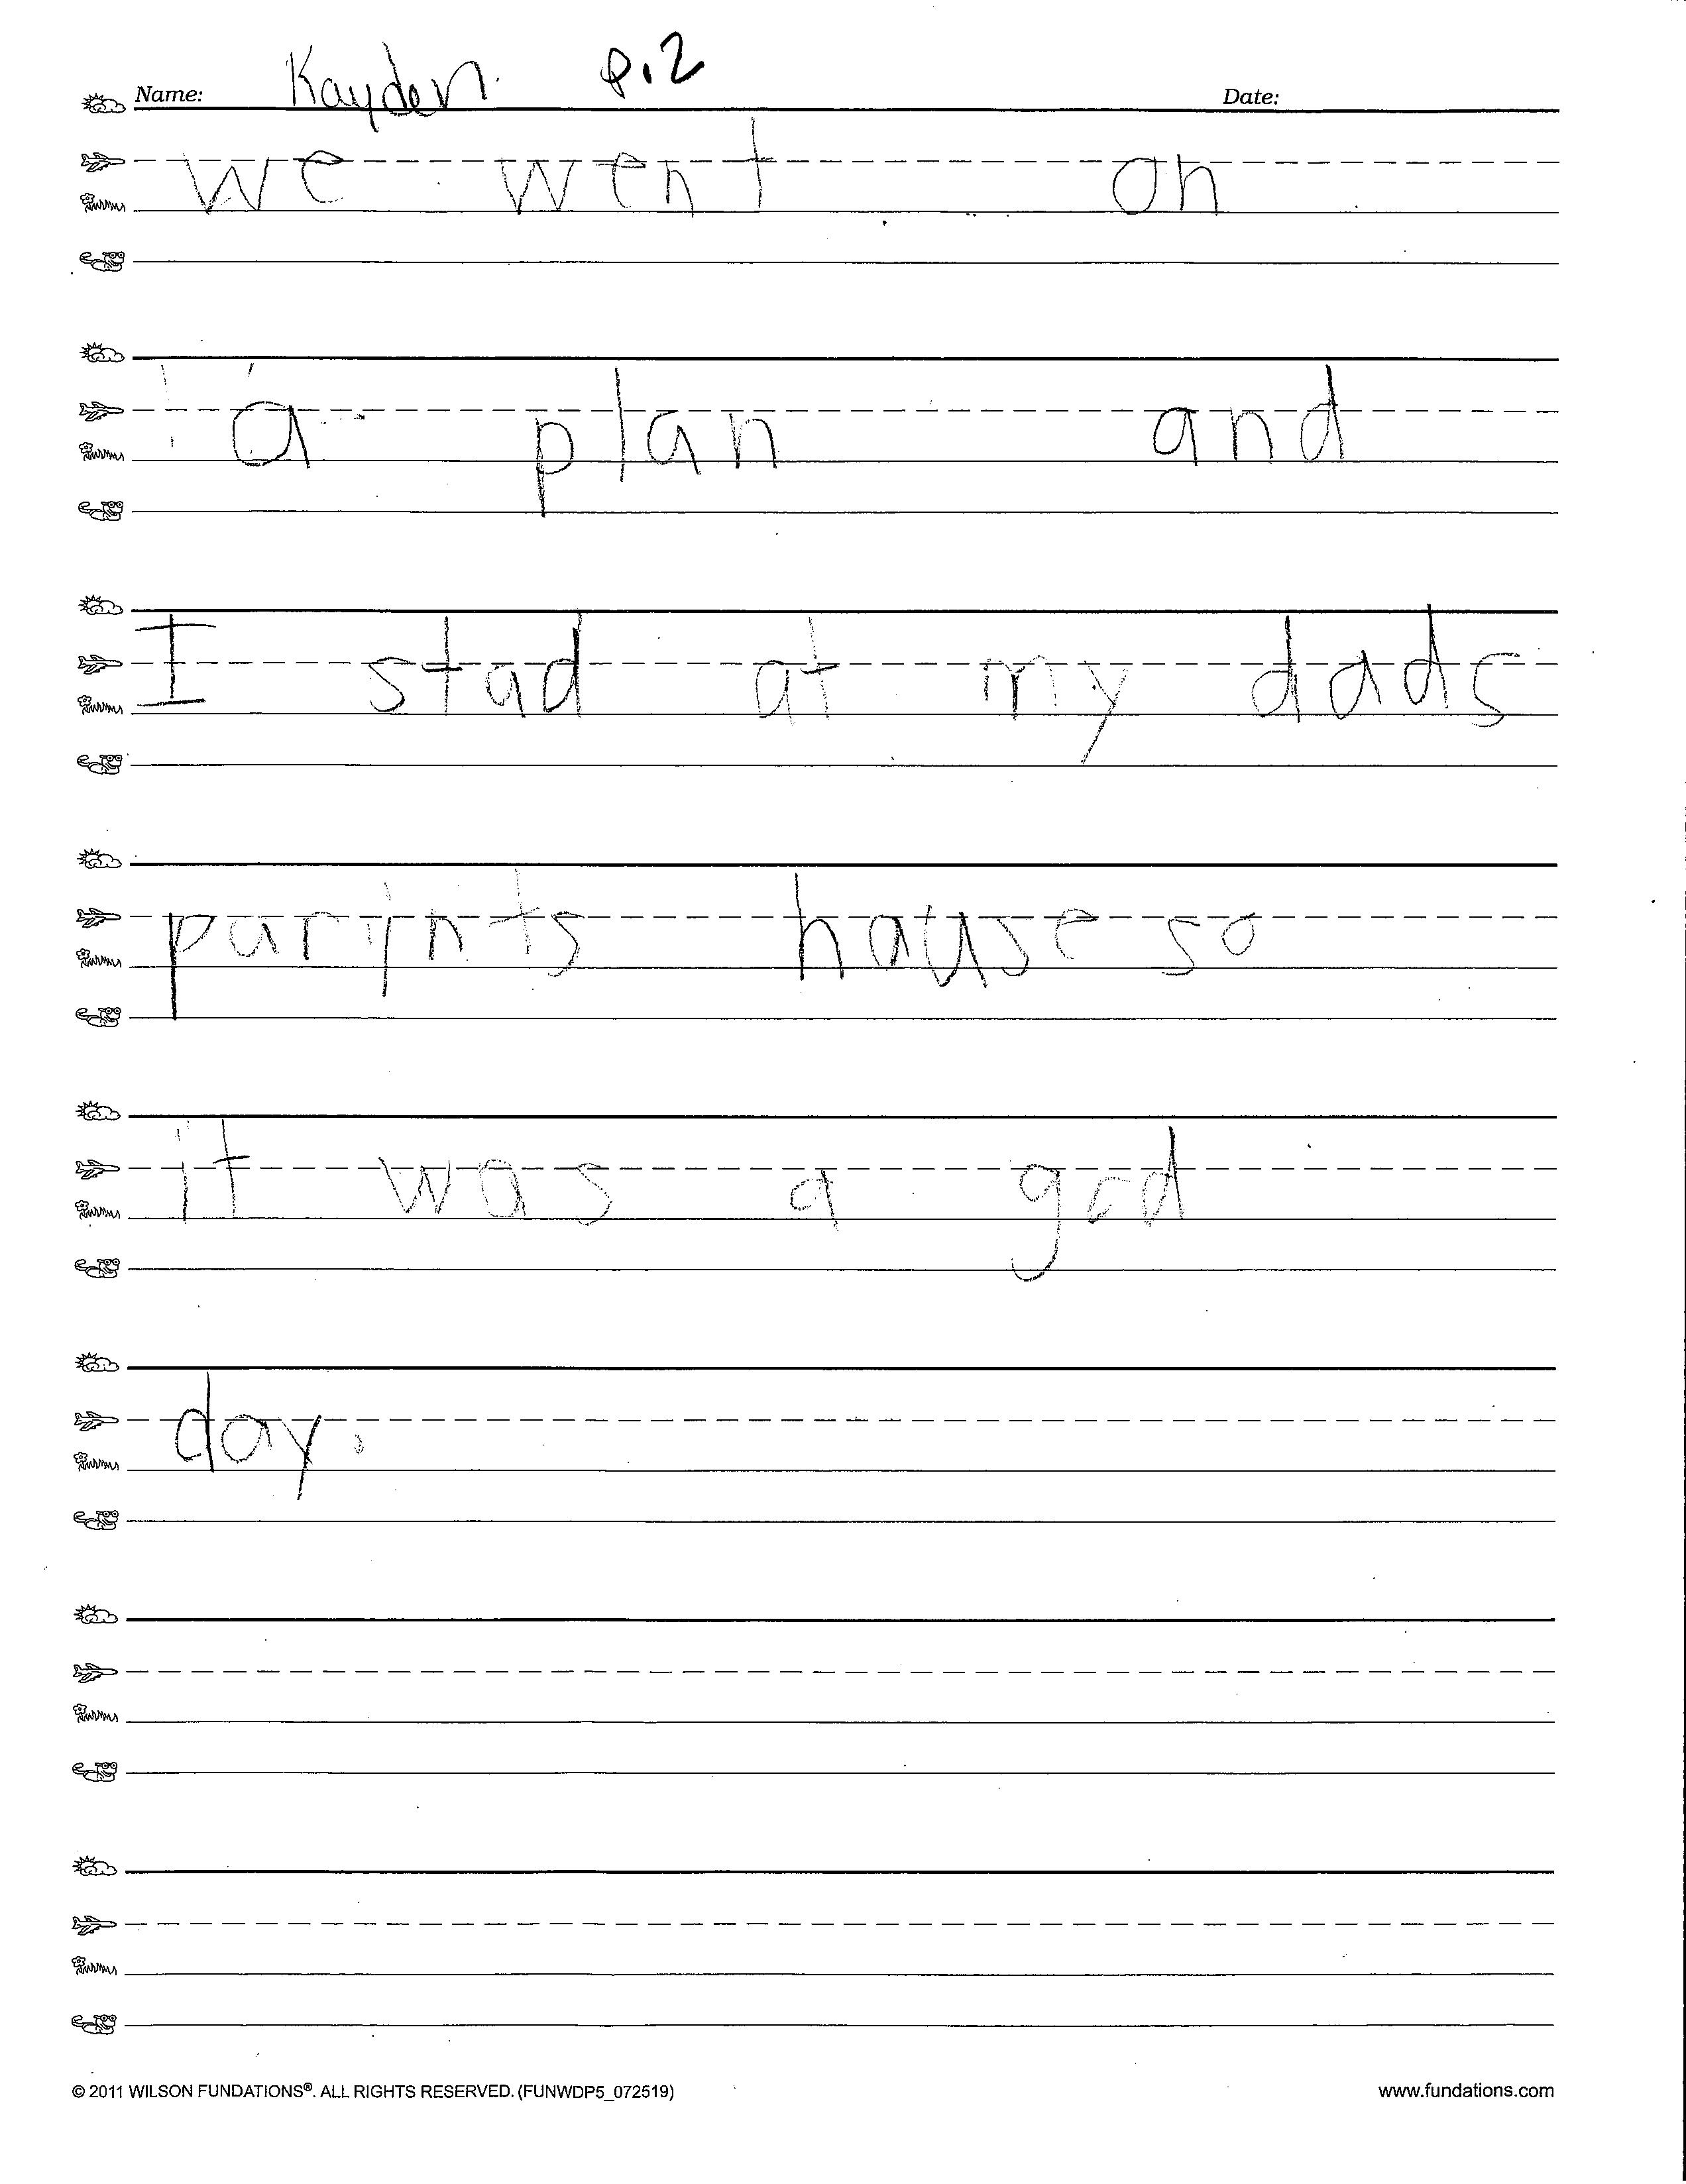 Name: Kayden p.2 Date:
we went on
a plan and
I stad at my dads
parints hause so
it was a god
day.
© 2011 WILSON FUNDATIONS®. ALL RIGHTS RESERVED. (FUNWDP5_072519) www.fundations.com